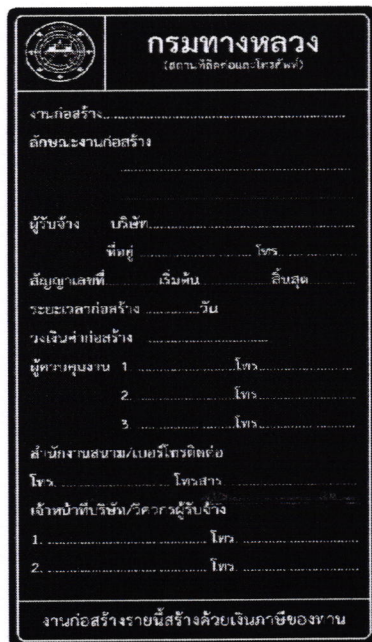 กรมทางหลวง
(สถานที่ติดต่อและโทรศัพท์)
งานก่อสร้าง
ลักษณะงานก่อสร้าง
ผู้รับจ้าง บริษัท
ที่อยู่ โทร
สัญญาเลขที่ เริ่มต้น สิ้นสุด
ระยะเวลาก่อสร้าง วัน
วงเงินค่าก่อสร้าง
ผู้ควบคุมงาน 1. โทร.
2. โทร.
3. โทร.
สำนักงานสนาม/เบอร์โทรติดต่อ
โทร. โทรสาร
เจ้าหน้าที่บริษัท/วิศวกรผู้รับจ้าง
1. โทร.
2. โทร.
งานก่อสร้างรายนี้สร้างด้วยเงินภาษีของท่าน